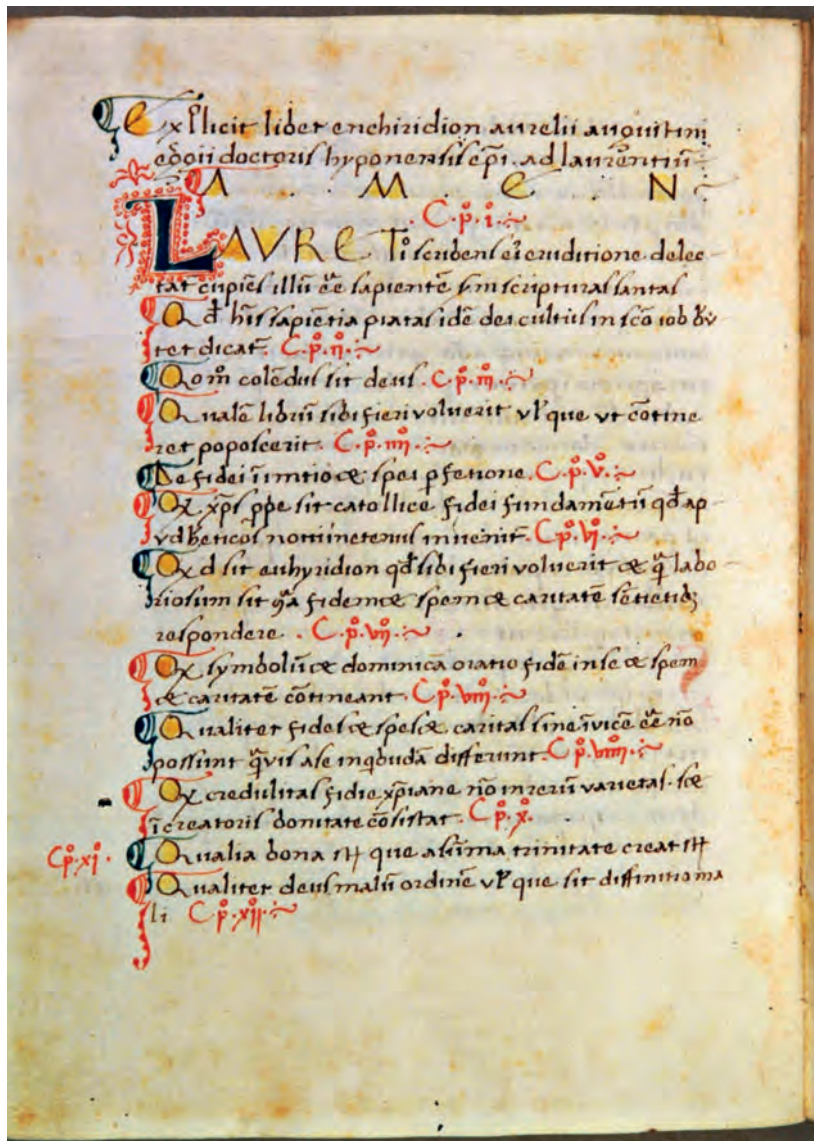 explicit liber enchiridion aurelii augustini
egregii doctoris hyponensis ep̄i. ad laurentiū
A M E N
.C.p̊.i.
LAVRETIo scribens ei eruditione delec
tat cupiēs illū eē̄ sapientē sm̄ scripturas santas
Qd̄ hīs sapiētia piatas idē dei cultus in scō iob
ter dicat̄. C.p̊.ij.
Quom̊ colēdus sit deus. C.p̊.iij.
Qualē librū sibi fieri voluerit vl̓ que vt cōtine
ret poposcerit. C.p̊.iiij.
De fidei īmtio & spei pfetione. C.p̊.v.
Qx xp̄s ppe sit catollice fidei fundamētū qd̄ ap
vd invenit̄. C.p̊.vi.
Qxd sit euhyridion qd̄ sibi fieri voluerit & q̄ labo
riosum sit fidem & spem & caritatē
respondere. C.p̊.vij.
Qx symbolū & dominica oratio fidē in se & spem
& caritatē cōtineant. C.p̊.viij.
Qualiter fides & spes & caritas sine īvicē eē̄ nō
possunt q̄vis a se inqbudā differunt. C.p̊.viiij.
Qx credulitas fidie xp̄iane nō in rerū varietas. sce
ī creatoris bonitate cōsistat. C.p̊.x.
C.p̊.xi. Qualia bona st que a sūma trinitate creat st
Qualiter deus malū ordinē vl̓ que sit diffinitio ma
li C.p̊.xij.